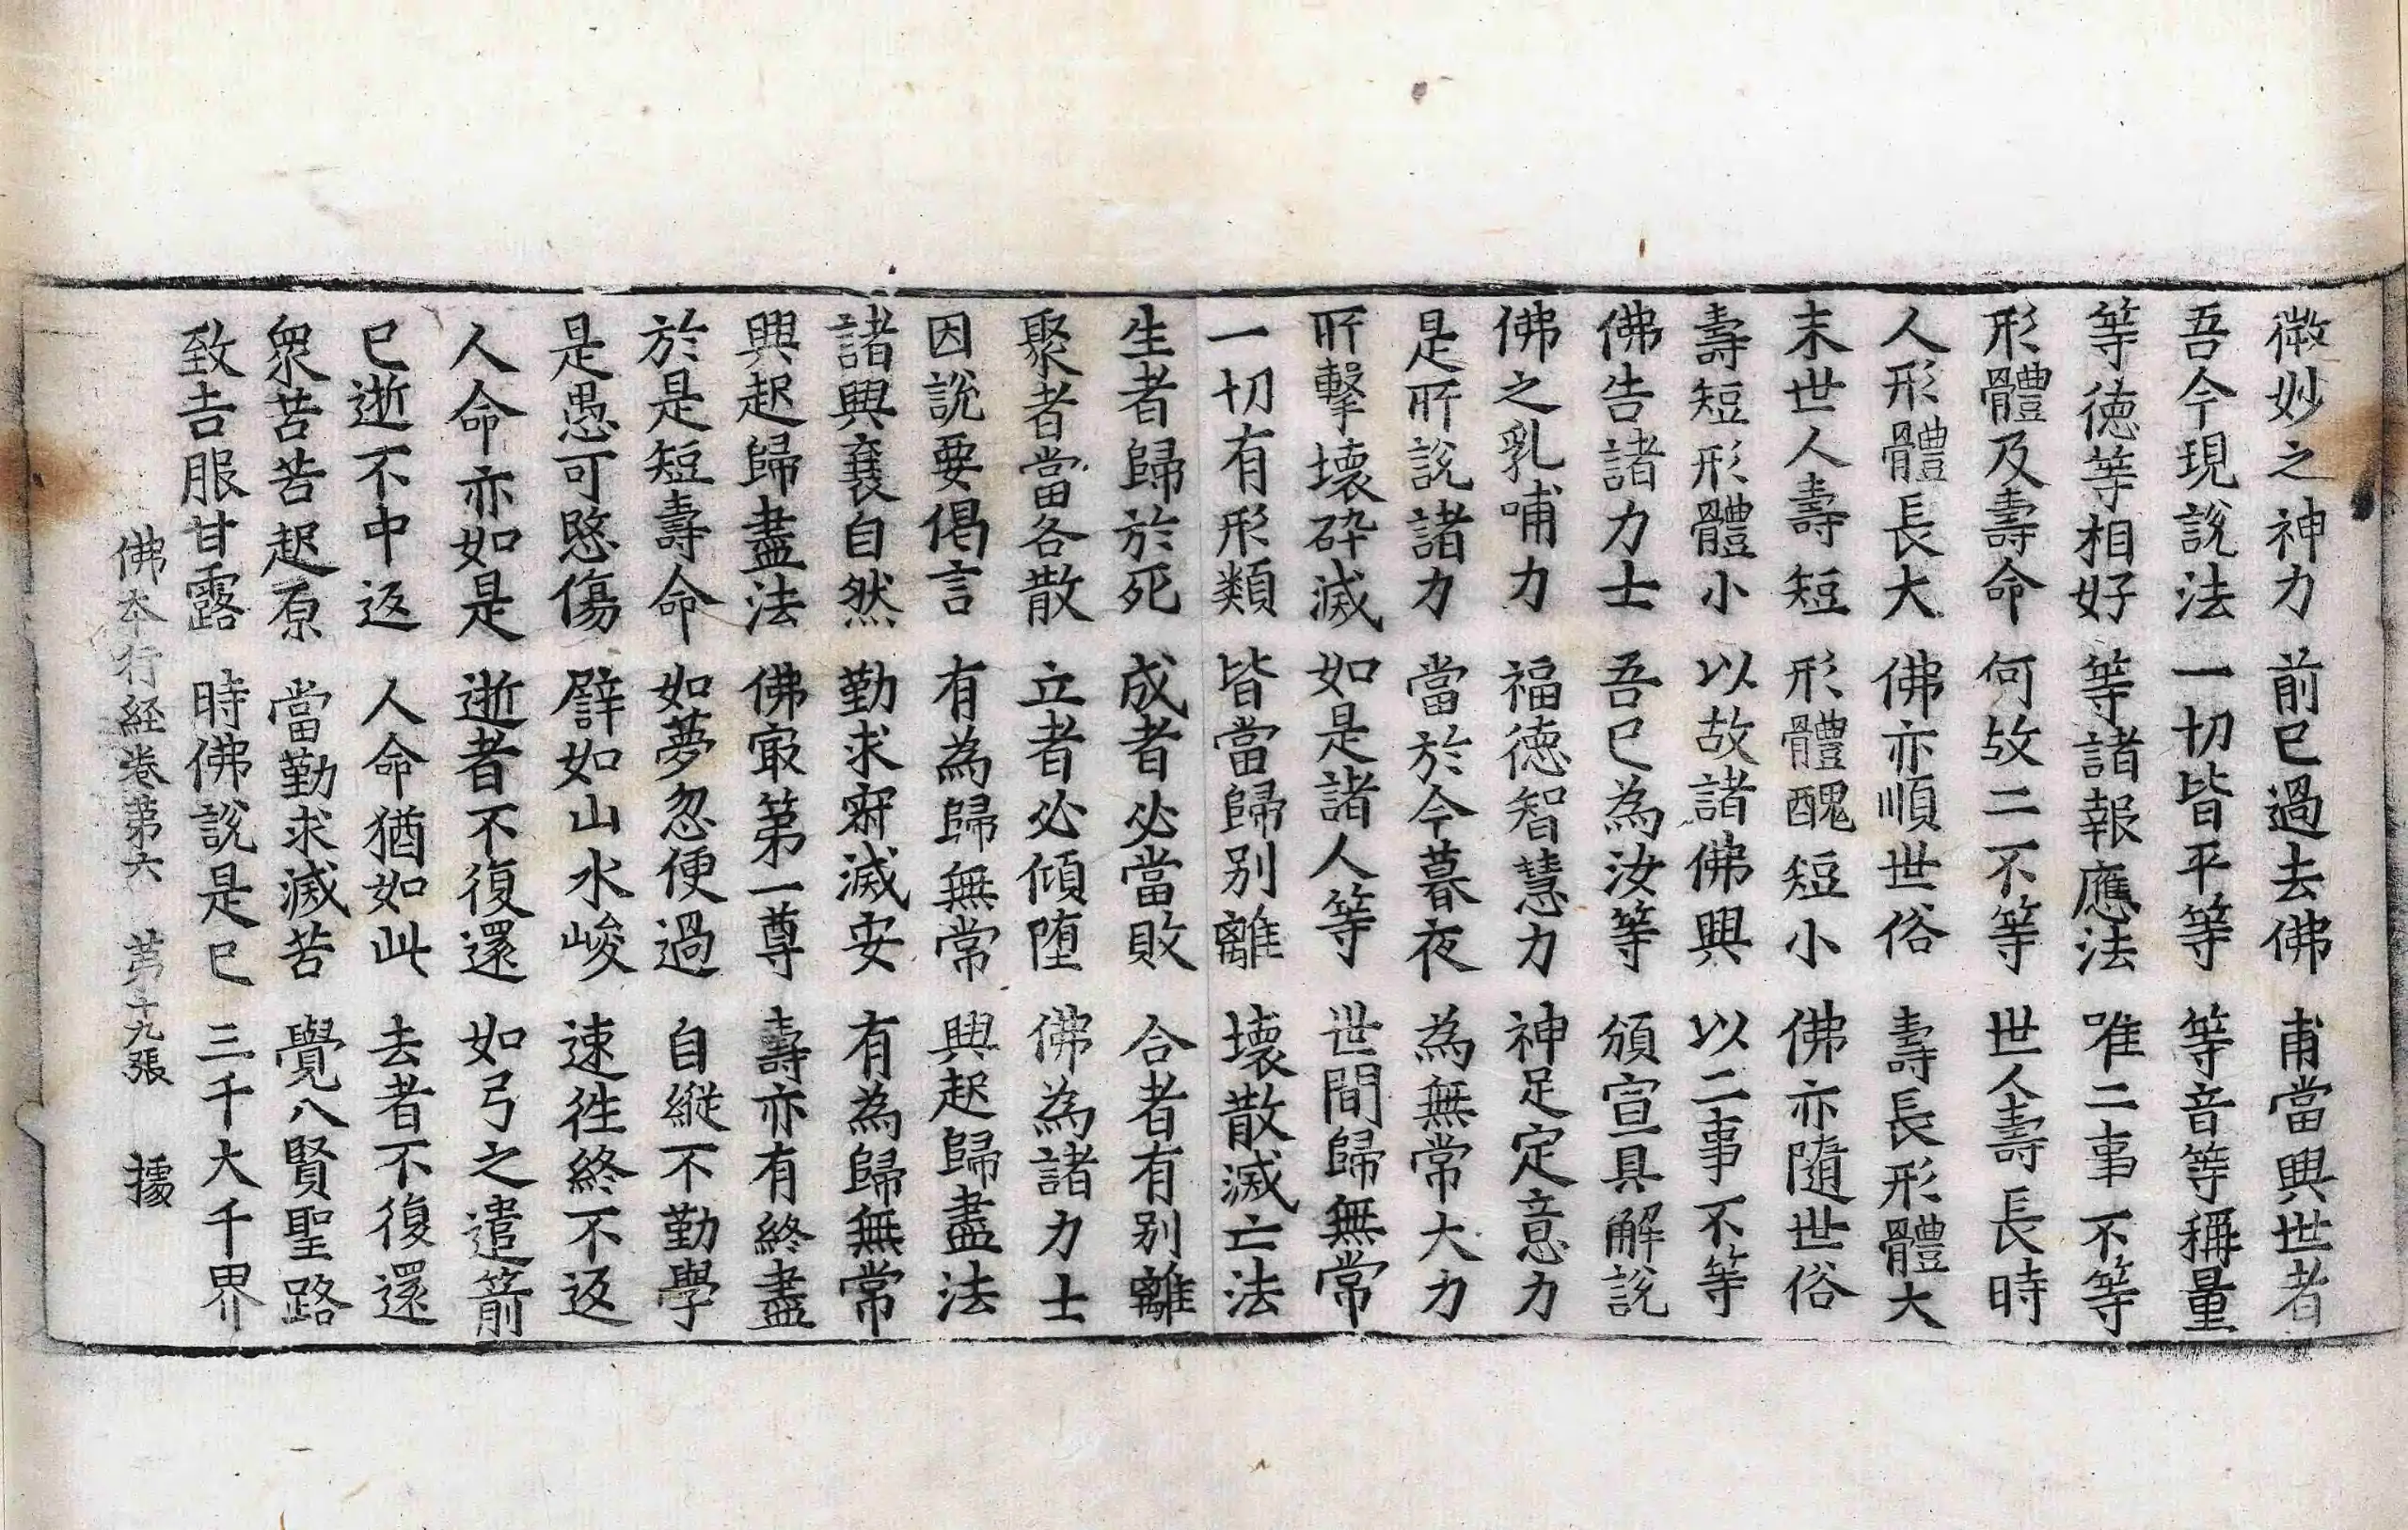 微妙之神力 前已過去佛 甫當興世者
吾今現說法 一切皆平等 等音等稱量
等德等相好 等諸報應法 唯二事不等
形體及壽命 何故二不等 世人壽長時
人形體長大 佛亦順世俗 壽長形體大
末世人壽短 形體醜短小 佛亦隨世俗
壽短形體小 以故諸佛興 以二事不等
佛告諸力士 吾已為汝等 頒宣具解說
佛之乳哺力 福德智慧力 神足定意力
是所說諸力 當於今暮夜 為無常大力
所擊壞碎滅 如是諸人等 世間歸無常
一切有形類 皆當歸別離 壞散滅亡法
生者歸於死 成者必當敗 合者有別離
聚者當各散 立者必傾墮 佛為諸力士
因說要偈言 有為歸無常 興起歸盡法
諸興衰自然 勤求寂滅安 有為歸無常
興起歸盡法 佛㝡第一尊 壽亦有終盡
於是短壽命 如夢忽便過 自縱不勤學
是愚可愍傷 譬如山水峻 速徃終不返
人命亦如是 逝者不復還 如弓之遣箭
已逝不中返 人命猶如此 去者不復還
衆苦苦起原 當勤求滅苦 覺八賢聖路
致吉服甘露 時佛說是已 三千大千界
佛本行経卷第六 第十九張 㩀